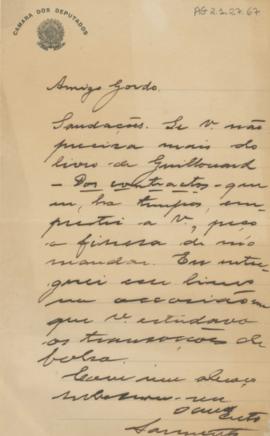 CAMARA DOS DEPUTADOS
AG 2.2.27.67
Amigo Gordo.
Saudações. Se V. não
precisa mais do
livro de Guillouard
– Dos contractos – que
eu, ha tempos, em-
prestei a V., peço
a fineza de m'o
mandar. Eu entre-
guei esse livro
na occasião em
que V. estudava
as transacções de
bolsa.
Com um abraço